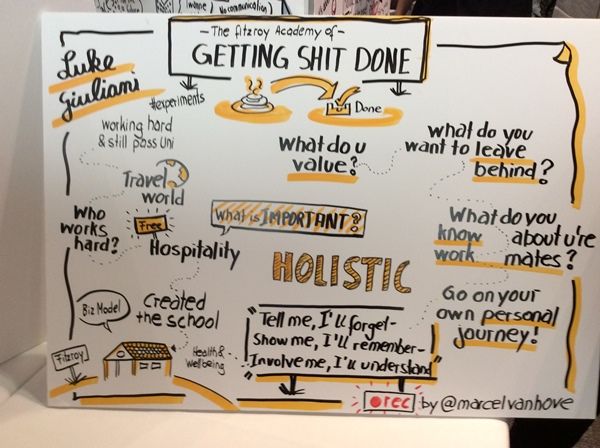 (Imagine) No communication)
- The fitzroy Academy of -
GETTING SHIT DONE
Luke
Giuliani
#experiments
Done
working hard
& still pass Uni
Travel
world
Who
works
hard?
Free
Hospitality
Biz Model
Created
the school
Fitzroy
Health &
Wellbeing
What do u
value?
What is IMPORTANT?
HOLISTIC
"Tell me, I'll forget -
Show me, I'll remember -
Involve me, I'll understand"
what do you
want to leave
behind?
What do you
know about u're
work mates?
Go on your
own personal
journey!
rec by @marcelvanhove